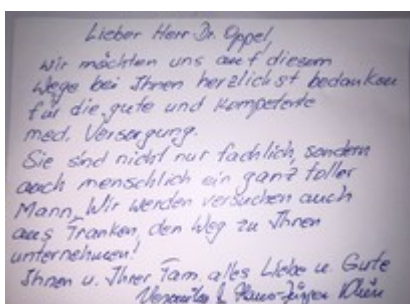 Lieber Herr Dr. Oppel,
wir möchten uns auf diesem
Wege bei Ihnen herzlichst bedanken
für die gute und kompetente
med. Versorgung.
Sie sind nicht nur fachlich, sondern
auch menschlich ein ganz toller
Mann. Wir werden versuchen auch
aus Franken, den Weg zu Ihnen
unternehmen!
Ihnen u. Ihrer Fam. alles Liebe u. Gute
& Hans-Jürgen